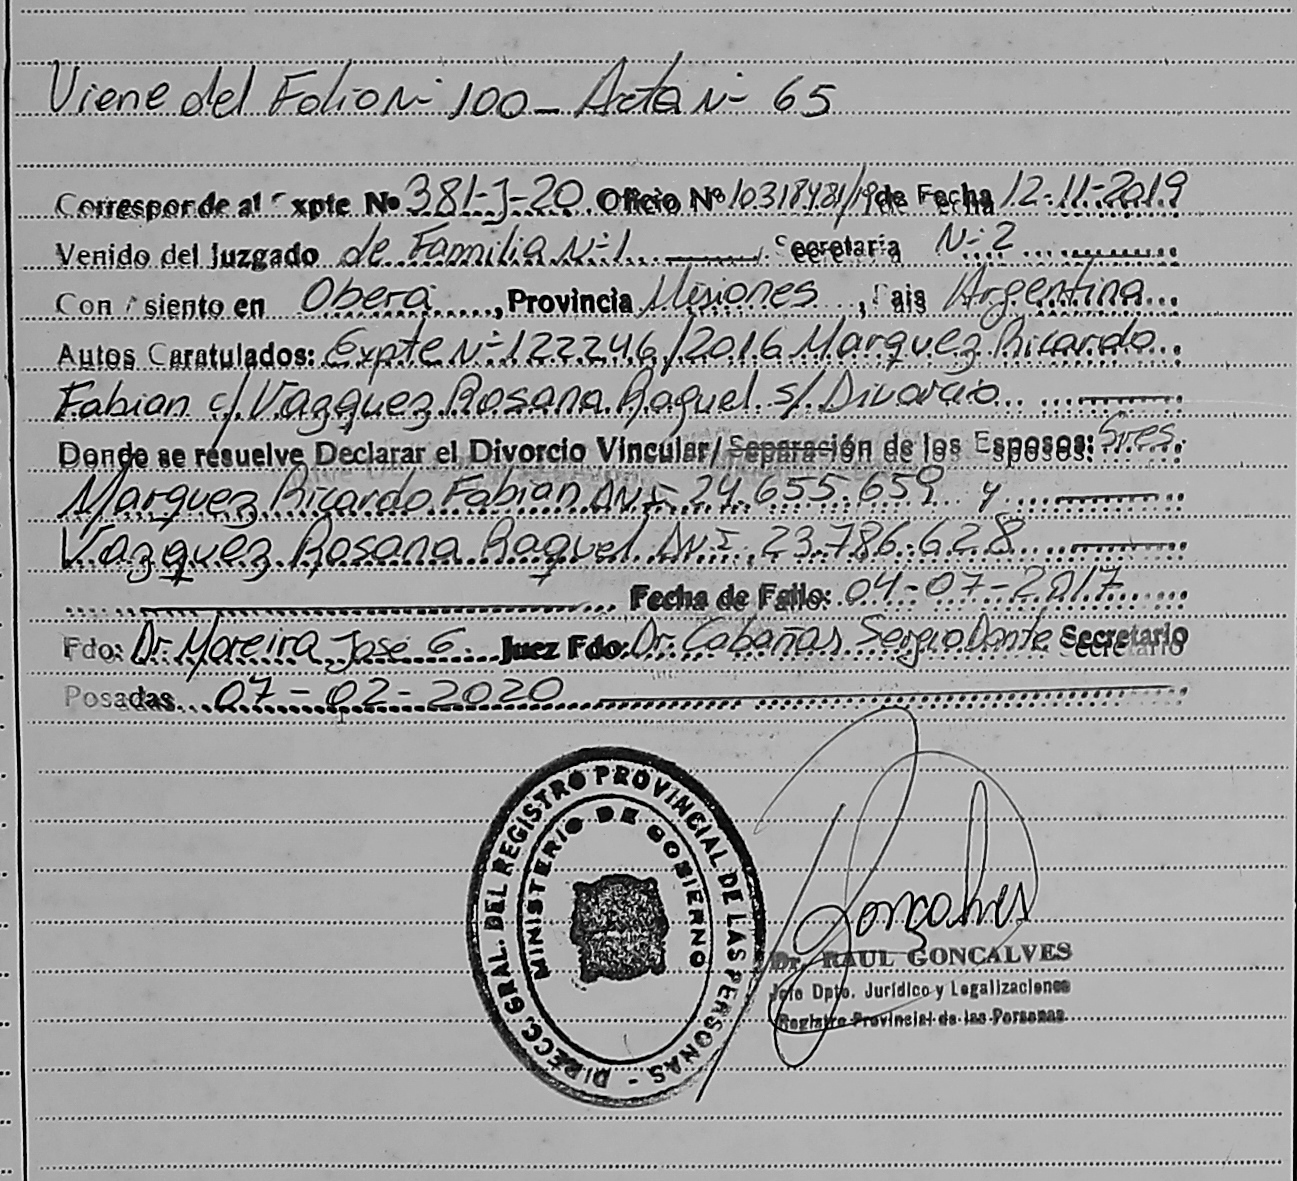 Viene del Folio N- 100 - Acta N- 65
Corresponde al Expte Nº 381-J-20 Oficio Nº 10318481/19 de Fecha 12-11-2019
Venido del Juzgado de Familia N-1 Secretaría N-2
Con Asiento en Oberá, Provincia Misiones, Pais Argentina
Autos Caratulados: Expte N-122246/2016 Marquez Ricardo
Fabian c/ Vazquez Rosana Raquel s/ Divorcio
Donde se resuelve Declarar el Divorcio Vincular/ Separación de los Esposos: Sres.
Marquez Ricardo Fabian DNI 24.655.659 y
Vazquez Rosana Raquel DNI 23.786.628
Fecha de Fallo: 04-07-2017
Fdo: Dr. Moreira, José G. Juez Fdo: Dr. Cabañas Sergio Dante Secretario
Posadas 07-02-2020
DIRECC. GRAL. DEL REGISTRO PROVINCIAL DE LAS PERSONAS -
MINISTERIO DE GOBIERNO
Goncalves
Dr. RAUL GONCALVES
Jefe Dpto. Jurídico y Legalizaciones
Registro Provincial de las Personas